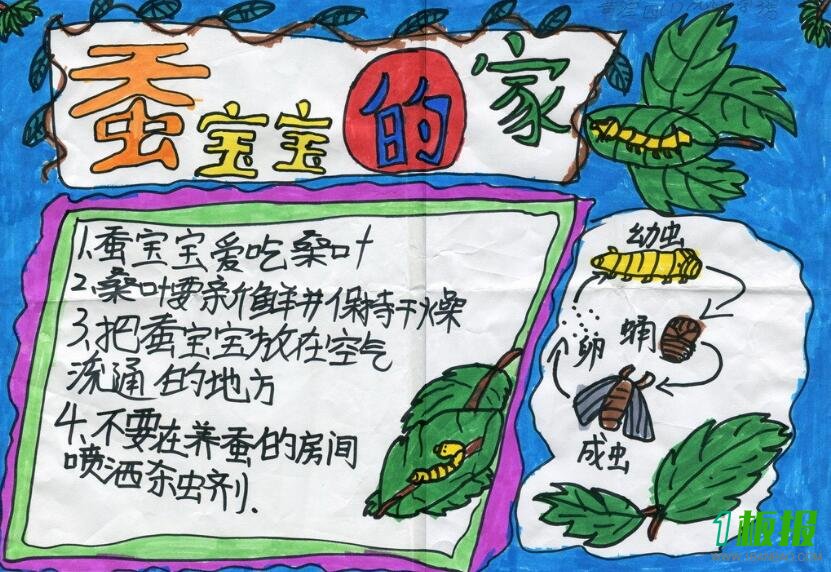 蚕宝宝的家
1.蚕宝宝爱吃桑叶
2.桑叶要新鲜并保持干燥
3.把蚕宝宝放在空气
流通的地方
4.不要在养蚕的房间
喷洒杀虫剂.
幼虫
蛹
卵
成虫
1板报